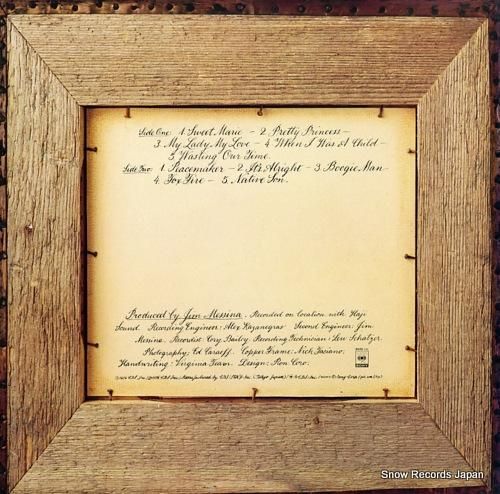 Side One: 1. Sweet Marie - 2. Pretty Princess -
3. My Lady, My Love - 4. When I Was A Child -
5. Wasting Our Time.
Side Two: 1. Peacemaker - 2. It's Alright - 3. Boogie Man -
4. Fox Fire - 5. Native Son.
Produced by Jim Messina. Recorded on location with Haji
Sound. Recording Engineer: Alex Kazanegras Second Engineer: Jim
Messina. Recordist: Cory Bailey Recording Technician: Lew Schatzer
Photography: Ed Caraeff. Copper Frame: Nick Fasciano.
Handwriting: Virginia Team. Design: Ron Coro.
SONY
Snow Records Japan